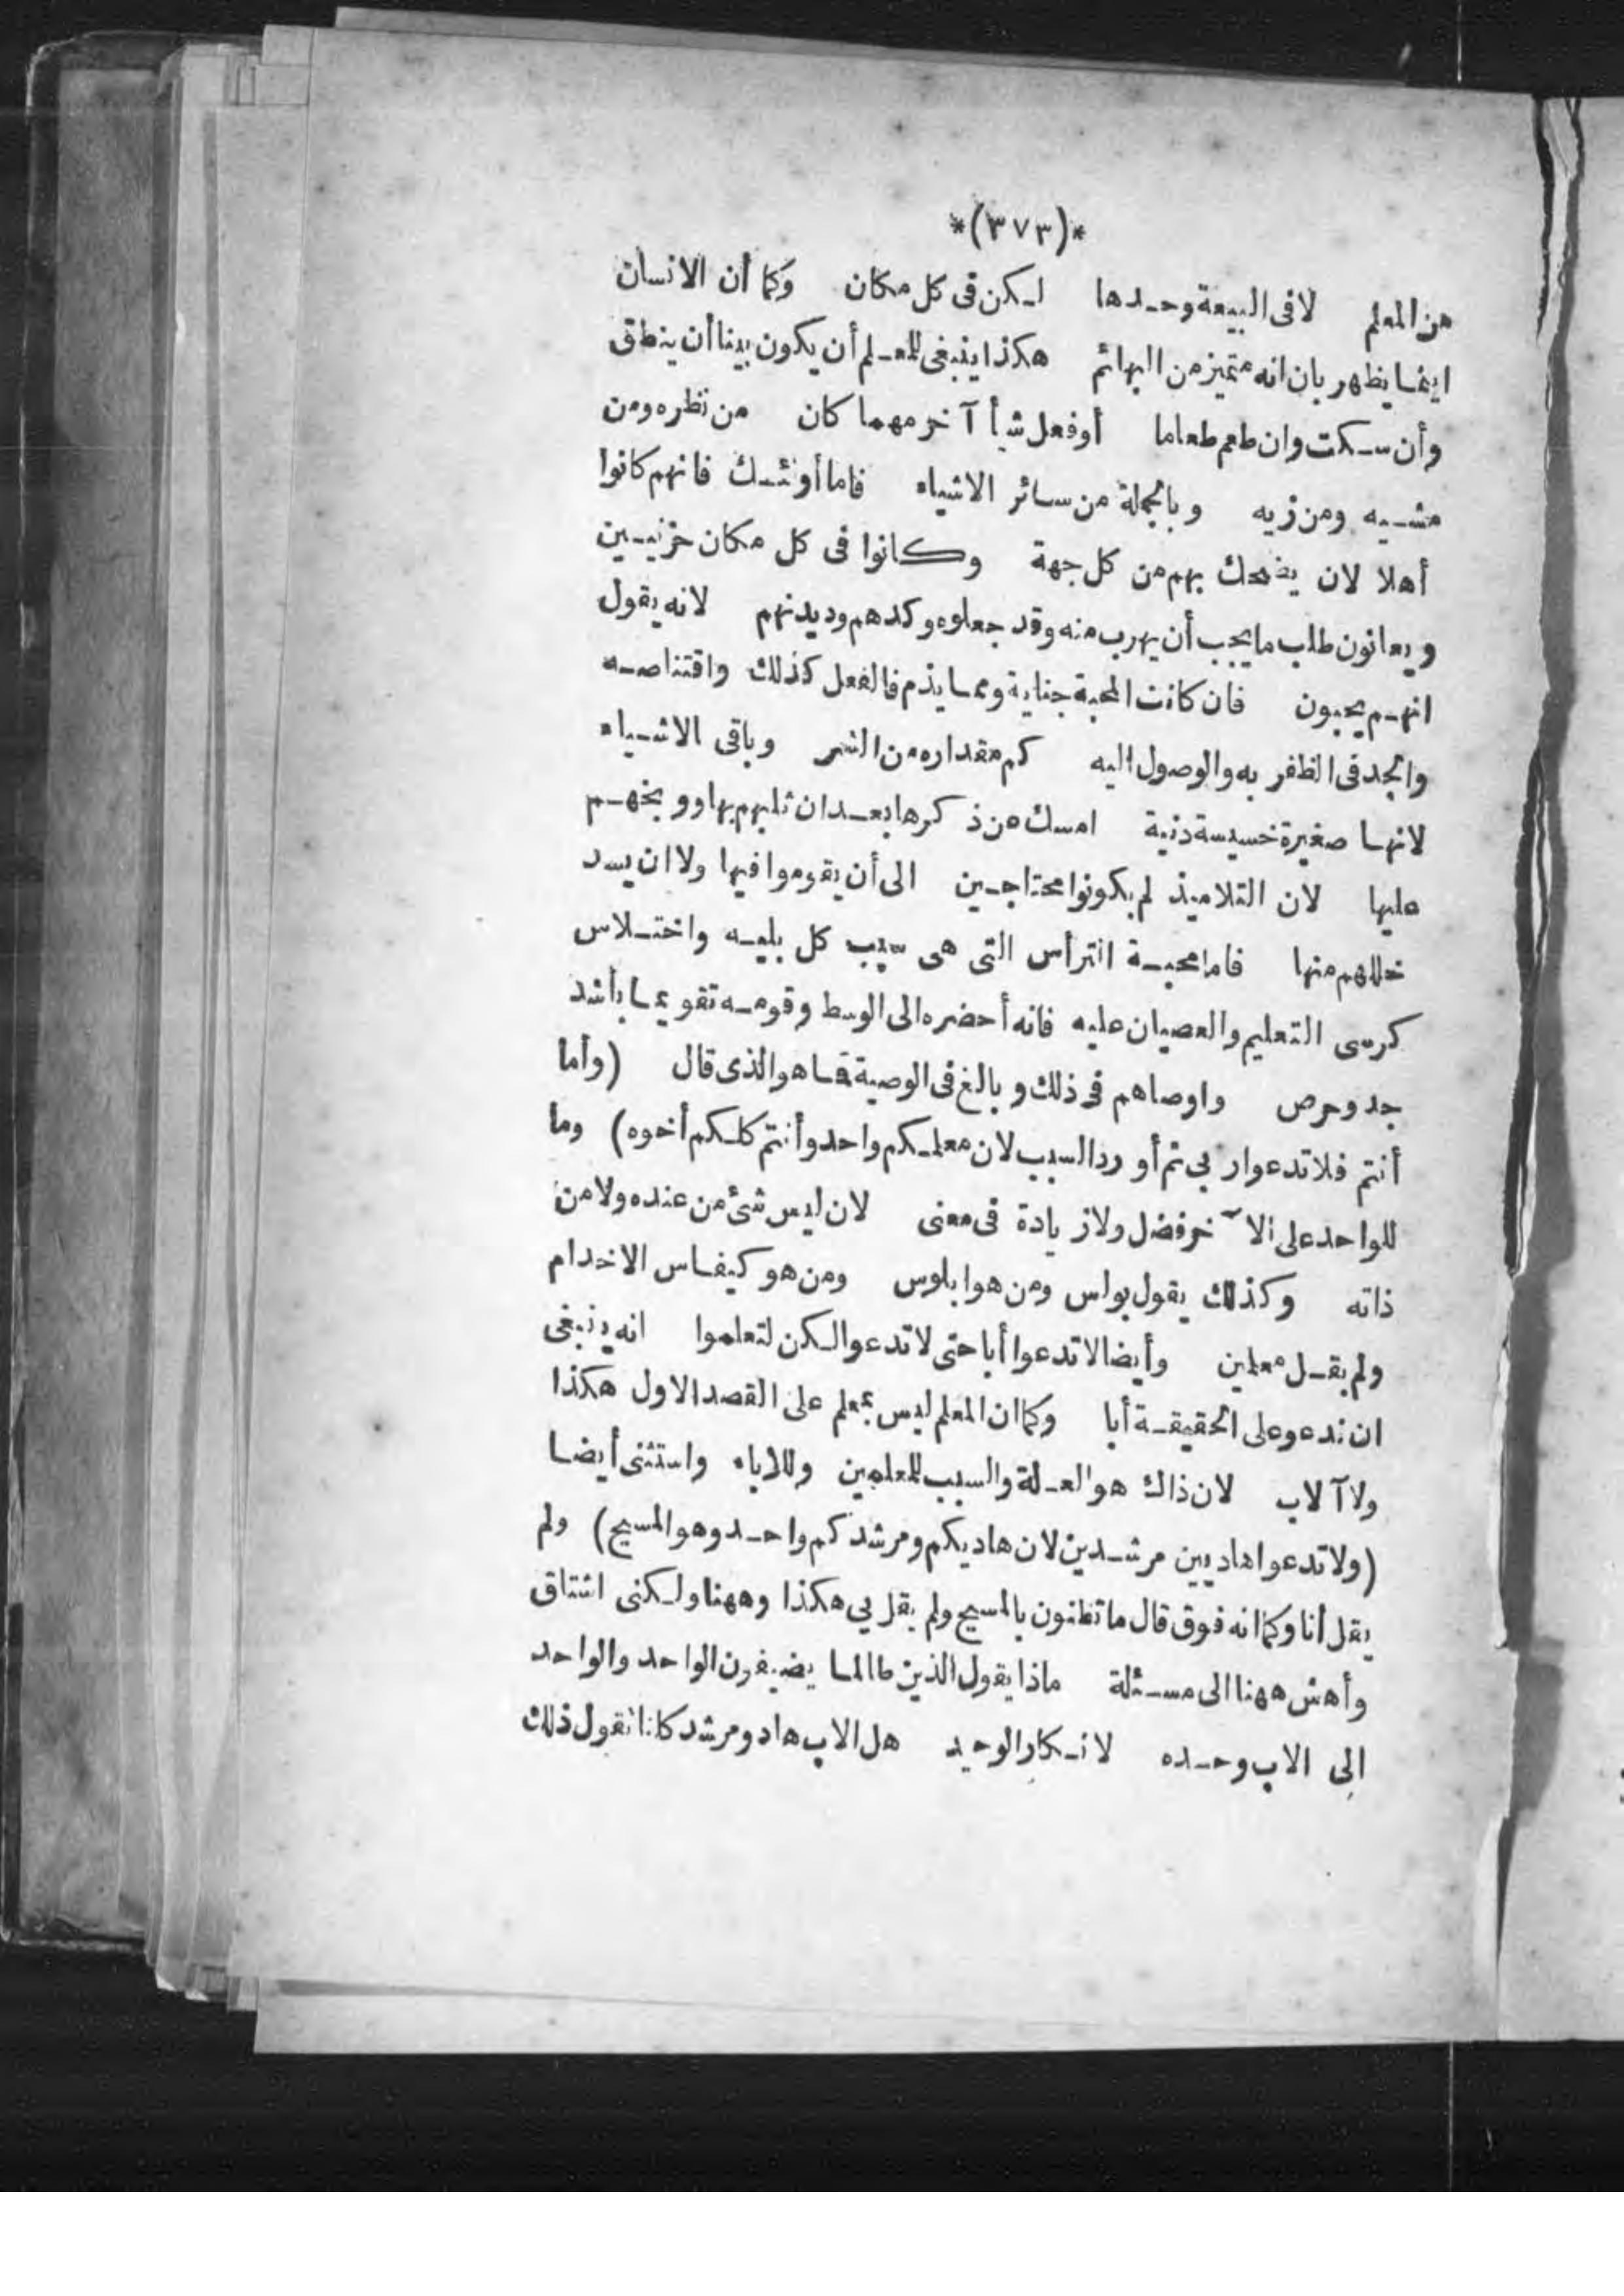 *(٣٧٣)*
من المعلم لا فى البيعة وحدها لكن فى كل مكان وكما أن الانسان
اينما يظهر بان انه متميز من البهائم هكذا ينبغى للمعلم أن يكون بينا أن ينطق
وأن سكت وان طعم طعاما أو فعل شيأ آخر مهما كان من نظره ومن
مشيه ومن زيه وبالجملة من سائر الاشياء فاما أولئك فانهم كانوا
أهلا لان يضحك بهم من كل جهة وكانوا فى كل مكان خزنيين
ويعانون طلب ما يجب أن يهرب منه وقد جعلوه وكدهم وديدنهم لانه يقول
انهم يحبون فان كانت المحبة جناية ومما يذم فالفعل كذلك واقتناصه
والجد فى الظفر به والوصول اليه كم مقداره من الشر وباقى الاشياء
لانها صغيرة خسيسة دنية امسك عن ذكرها بعد ان ثلبهم بها ووبخهم
عليها لان التلاميذ لم يكونوا محتاجين الى أن يقوموا فيها ولا ان يسد
خللهم منها فاما محبة الترأس التى هى سبب كل بليه واختلاس
كرسى التعليم والعصيان عليه فانه أحضره الى الوسط وقومه تقويما بأشد
جد وحرص واوصاهم فى ذلك وبالغ فى الوصية فما هو الذى قال (وأما
أنتم فلا تدعوا ربي ثم أورد السبب لان معلمكم واحد وأنتم كلكم أخوه) وما
للواحد على الآخر فضل ولا زيادة فى معنى لان ليس شئ من عنده ولا من
ذاته وكذلك يقول بولس ومن هو ابلوس ومن هو كيفاس الا خدام
ولم يقل معلمين وأيضا لا تدعوا أبا حتى لا تدعوا لكن لتعلموا انه ينبغى
ان ندعو على الحقيقة أبا وكما ان المعلم ليس بمعلم على القصد الاول هكذا
ولا آلاب لان ذاك هو العلة والسبب للمعلمين وللاباء واستثنى أيضا
(ولا تدعوا هاديين مرشدين لان هاديكم ومرشدكم واحد وهو المسيح) ولم
يقل أنا وكما انه فوق قال ما تظنون بالمسيح ولم يقل بي هكذا وههنا ولكنى اشتاق
وأهش ههنا الى مسئلة ماذا يقول الذين طالما يضيفون الواحد والواحد
الى الاب وحده لانكار الوحيد هل الاب هاد ومرشد كانا نقول ذلك